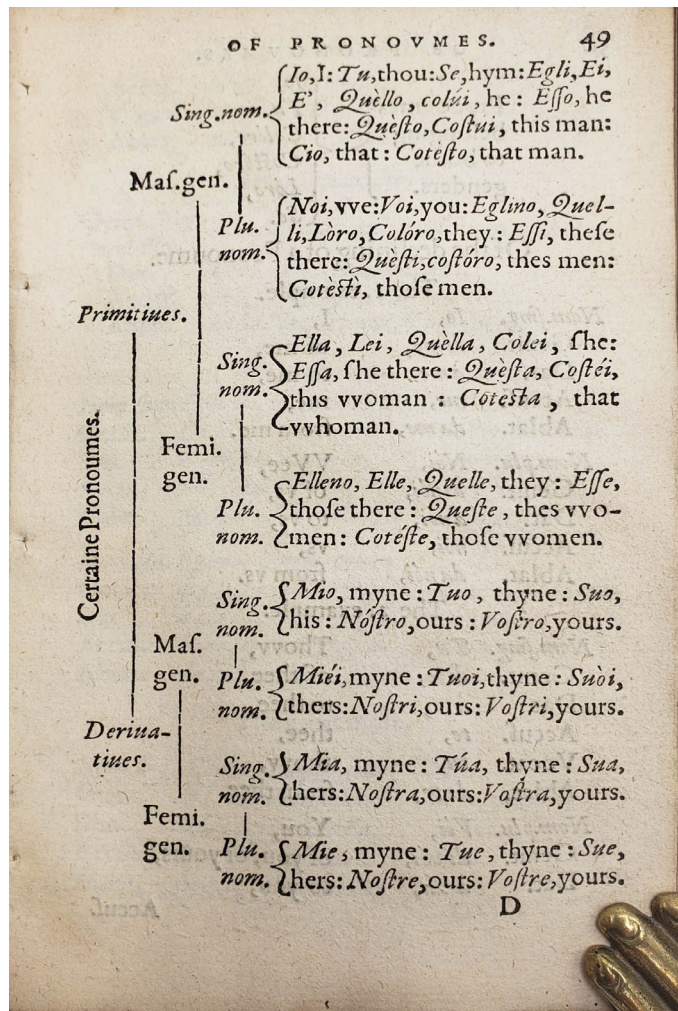 OF PRONOVMES. 49
Certaine Pronoumes.
Primitiues.
Maſ.gen.
Sing.nom.
Io,I: Tu,thou:Se,hym:Egli,Ei,
E', Quèllo, colúi, he: Eſſo, he
there: Quèſto,Coſtui, this man:
Cio, that: Cotèſto, that man.
Plu.
nom.
Noi,vve:Voi,you:Eglino, Quel-
li,Lòro,Colóro,they: Eſſi, theſe
there: Quèſti,coſtóro, thes men:
Cotèſtì, thoſe men.
Femi.
gen.
Sing.
nom.
Ella, Lei, Quèlla, Colei, ſhe:
Eſſa, ſhe there: Quèſta, Coſtéi,
this vvoman: Coteſta, that
vvhoman.
Plu.
nom.
Elleno, Elle, Quelle, they: Eſſe,
thoſe there: Queſte, thes vvo-
men: Cotéſte, thoſe vvomen.
Deriua-
tiues.
Maſ.
gen.
Sing.
nom.
Mio, myne: Tuo, thyne: Suo,
his: Nóſtro,ours: Voſtro,yours.
Plu.
nom.
Miéi,myne: Tuoi,thyne: Suòi,
thers:Noſtri,ours: Voſtri,yours.
Femi.
gen.
Sing.
nom.
Mia, myne: Túa, thyne: Sua,
hers:Noſtra,ours:Voſtra,yours.
Plu.
nom.
Mie, myne: Tue, thyne: Sue,
hers: Noſtre,ours: Voſtre,yours.
D